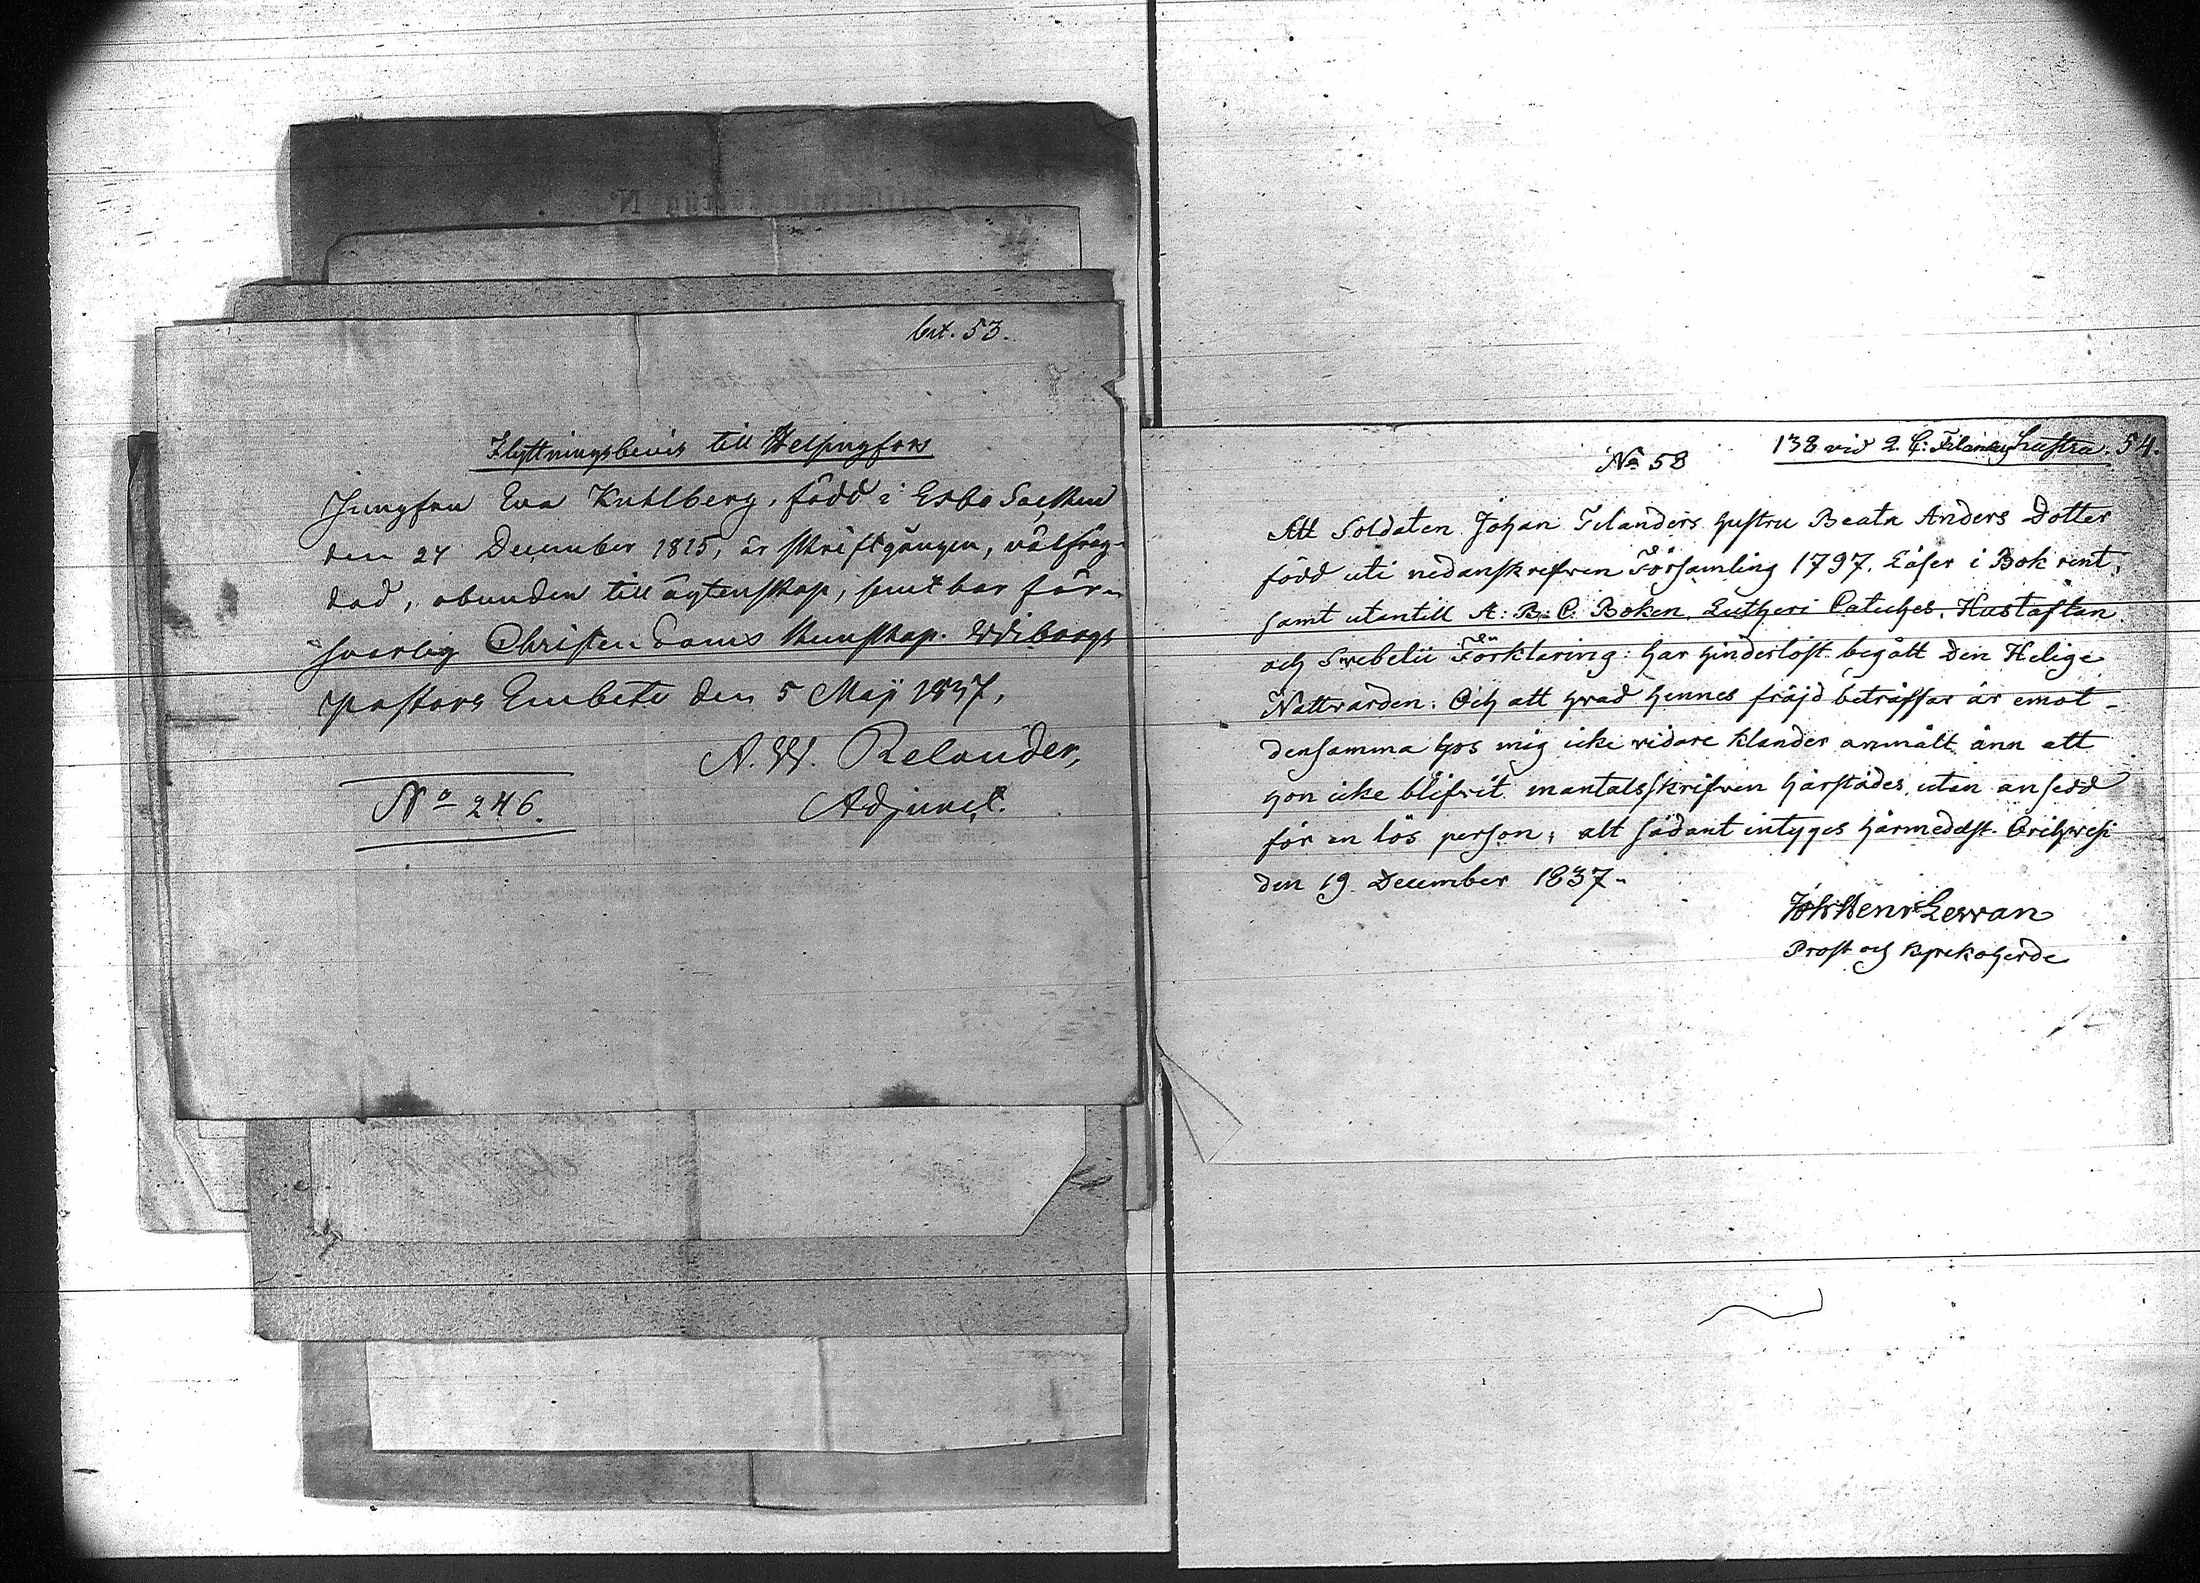 53.
Flyttningsbevis till Helsingfors
Jungfru Eva Kuhlberg, född i Esbo Sochen
den 24 December 1815, är skriftgången, välfräg-
dad, obunden till ägtenskap, samt har för-
svarlig Christendoms kunskap. Wiborgs
Pastors Embete den 5 Maji 1837.
A. W. Relander,
Adjunct.
No 246.
No 58
138 vid 2. C: Filanders hustru. 54.
Att Soldaten Johan Filanders hustru Beata Anders Dotter
född uti nedanskrefven Församling 1797. Läser i Bok rent,
samt utantill A. B. C. Boken, Lutheri Catiches, Hustaflan
och Svebelii Förklaring: har hinderlöst begått den Helige
Nattvarden: Och att hvad hennes fräjd beträffar är emot -
densamma hos mig icke vidare klander anmält änn att
hon icke blifvit mantalsskrifven härstädes, utan ansedd
för en lös person; att sådant intyges härmedelst. Orihvesi
den 19 December 1837.-
Prost och Kyrkoherde